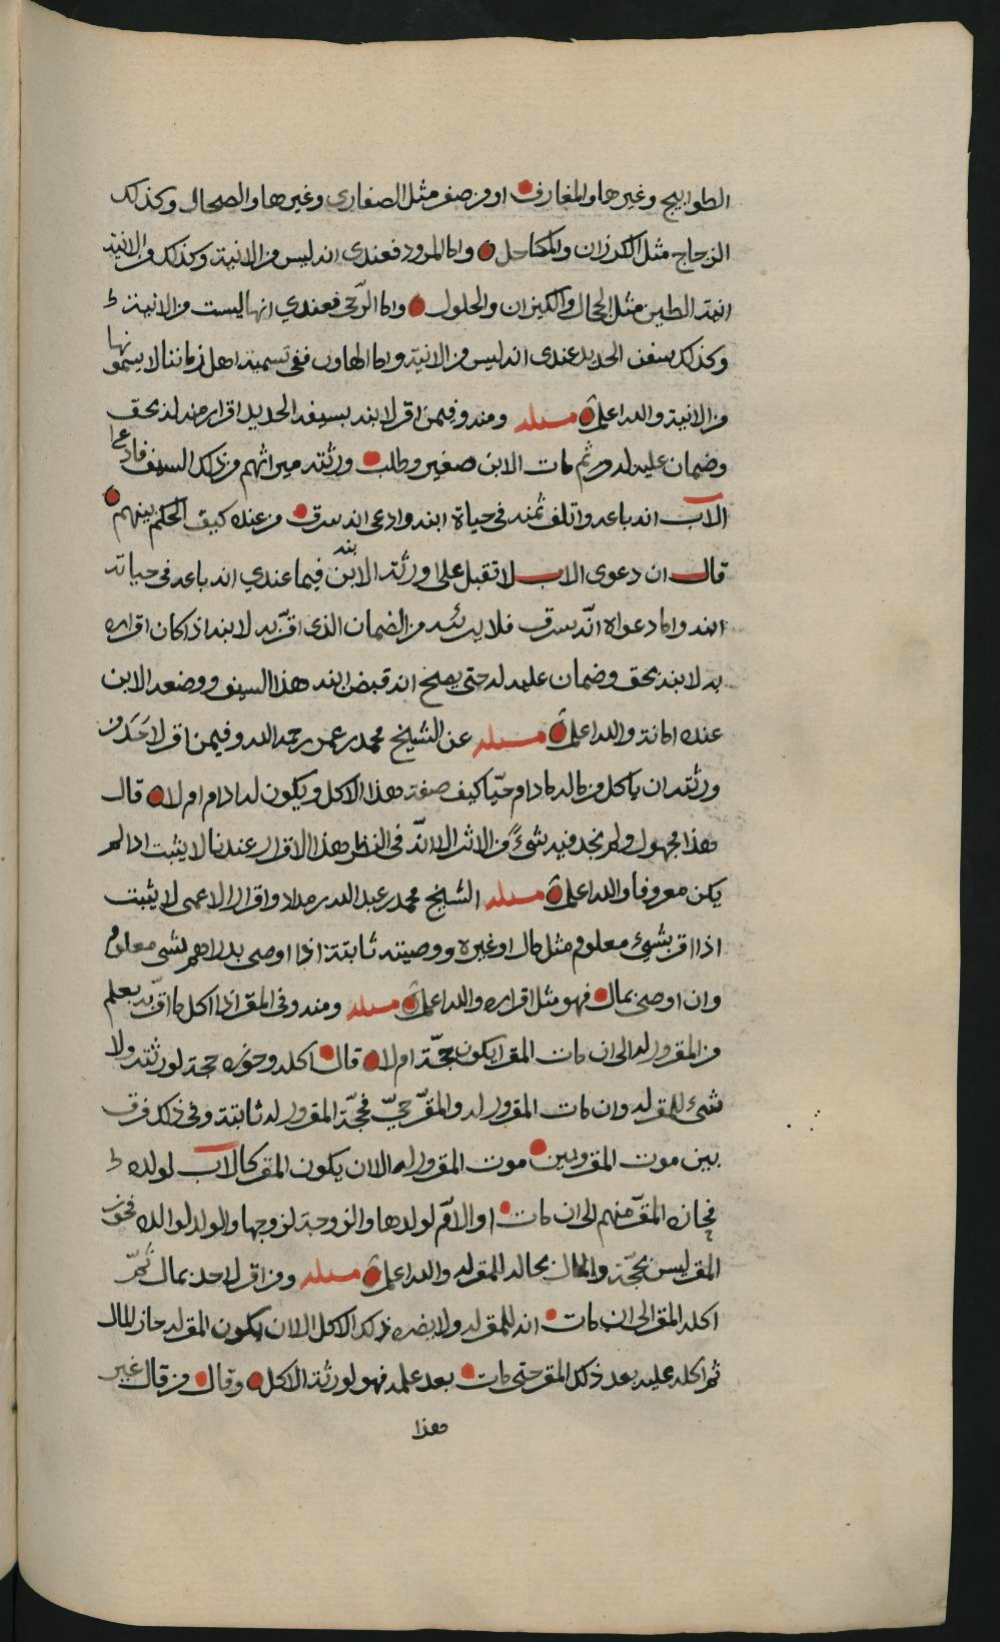 الطوابيج وغيرها والمغارف او من صفر مثل الصفاري وغيرها والصحال وكذلك
الزجاج مثل الكرزان والمكاحل واما المرود فعندي انه ليس من الانية وكذلك من الانية
انية الطين مثل الجحال والكيزان والحلول واما الرحى فعندي انها ليست من الانية
وكذلك سفن الحديد عندي انه ليس من الانية واما الهاون ففي تسمية اهل زماننا لا يسمونها
من الانية والله اعلم مسئلة ومنه وفيمن اقر لابنه بسيف الحديد اقرار منه له بحق
وضمان عليه له ثم مات الابن صغير وطلب ورثته ميراثهم من ذلك السيف فادعى
الاب انه باعه واتلف ثمنه في حياة ابنه وادعى انه سرق من عنده كيف الحكم بينهم
قال ان دعوى الاب لا تقبل على ورثة الابن ابنه فيما عندي انه باعه في حياته
ابنه واما دعواه انه سرق فلا يبرئه من الضمان الذي اقر به لابنه اذا كان اقراره
به لابنه بحق وضمان عليه له حتى يصح انه قبض ابنه هذا السيف ووضعه الابن
عنده امانة والله اعلم مسئلة عن الشيخ محمد بن عمر رحمه الله وفيمن اقر لاحد من
ورثته ان ياكل من ماله مادام حيا كيف صفة هذا الاكل ويكون له ادام ام لا قال
هذا مجهول ولم نجد فيه شيء من الاثر الا انه في النظر هذا الاقرار عندنا لا يثبت اذا لم
يكن معروفا والله اعلم مسئلة الشيخ محمد بن عبدالله بن مداد واقرار الاعمى لا يثبت
اذا اقر بشيء معلوم مثل مال او غيره ووصيته ثابتة اذا اوصى بدراهم بشي معلوم
وان اوصى بمال فهو مثل اقراره والله اعلم مسئلة ومنه وفي المقر اذا اكل ما اقر به بعلم
من المقرور له الى ان مات المقر ايكون حجة ام لا قال اكله وحوزه حجة لورثته ولا
شيء للمقر له وان مات المقرور له والمقر حيّ فحجة المقرور له ثابتة وفي ذلك فرق
بين موت المقر وبين موت المقرور له الا ان يكون المقر كالاب لولده
فحازه المقر منهم الى ان مات او الام لولدها والزوجة لزوجها والولد لوالده فحوز
المقر ليس بحجة والمال بحاله للمقر له والله اعلم مسئلة ومن اقر لاحد بمال ثم
اكله المقر الى ان مات انه للمقر له ولا يضره ذلك الاكل الا ان يكون المقر له حاز المال
ثم اكله عليه بعد ذلك المقر حتى مات بعد علمه فهو لورثة الاكل وقال من قال غير
هذا